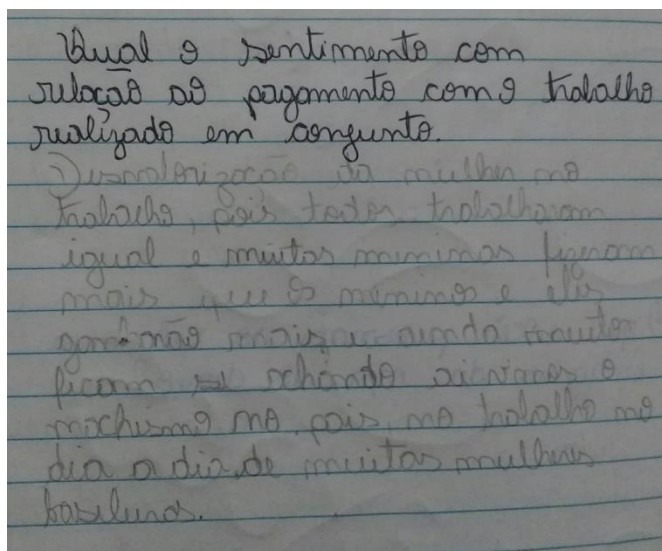 Qual o sentimento com
relação ao pagamento com o trabalho
realizado em conjunto.
Desvalorização da mulher no
trabalho, pois todos trabalharam
igual e muitas meninas fizeram
mais que os meninos e eles
ganharão mais e ainda muitos
ficam se achando ai vimos o
machismo no pais, no trabalho no
dia a dia, de muitas mulheres
basileiras.